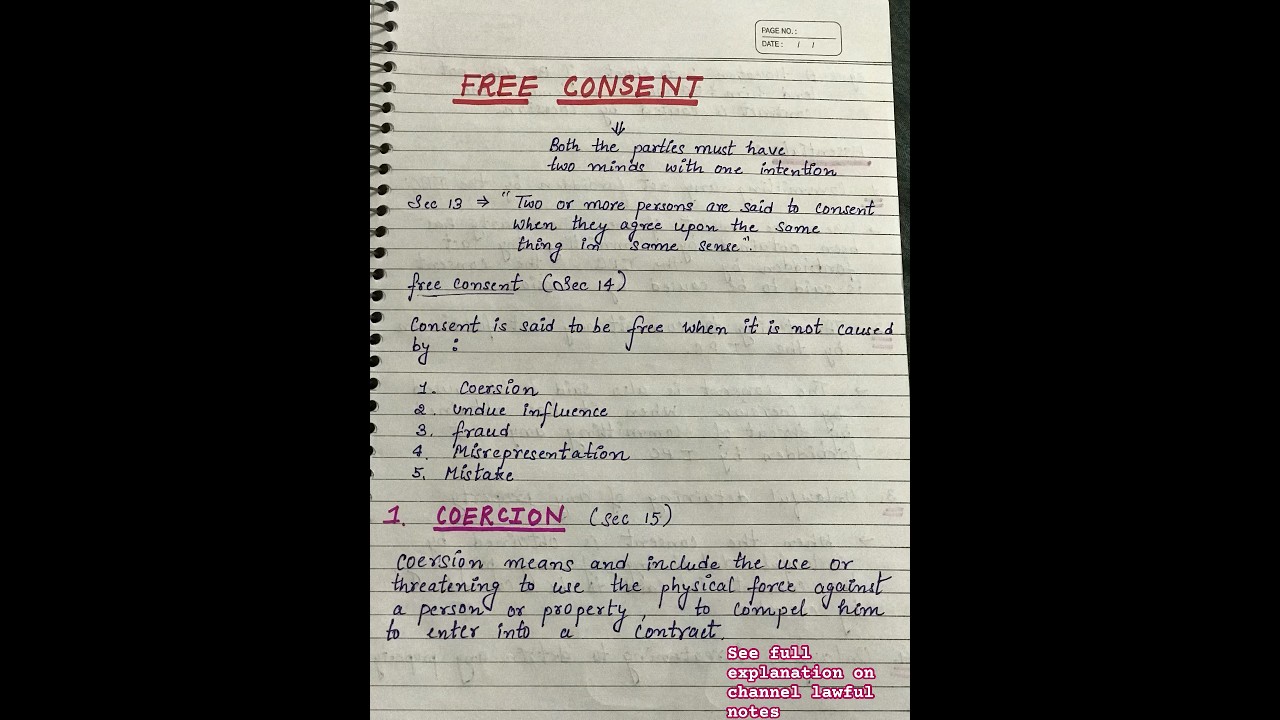 PAGE NO.:
DATE: / /
FREE CONSENT
⇓
Both the parties must have
two minds with one intention
Sec 13 → "Two or more persons are said to consent
when they agree upon the same
thing in same sense".
free consent (Sec 14)
Consent is said to be free when it is not caused
by :
1. Coersion
2. undue influence
3. fraud
4. Misrepresentation
5. Mistake
1. COERCION (sec 15)
coersion means and include the use or
threatening to use the physical force against
a person or property, to compel him
to enter into a contract.
See full
explanation on
channel lawful
notes